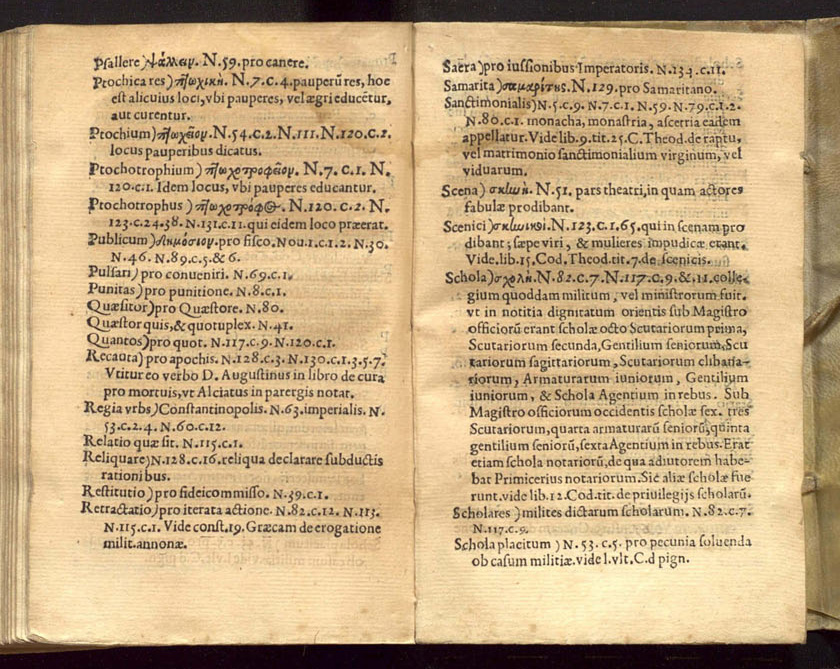 Psallere)ψάλλειν. N.59. pro canere.
Ptochica res) πτωχικὴ. N.7.c.4. pauperū res, hoc
est alicuius loci, vbi pauperes, vel ægri educētur,
aut curentur.
Ptochium) πτωχεῖον. N.54.c.2. N.111. N.120.c.2.
locus pauperibus dicatus.
Ptochotrophium) πτωχοτροφεῖον. N.7.c.1. N.
120.c.1. Idem locus, vbi pauperes educantur.
Ptochotrophus) πτωχοτρόφος. N.120.c.2. N.
123.c.24.38. N.131.c.11. qui eidem loco præerat.
Publicum) δημόσιον. pro fisco. Nou.1.c.1.2. N.30.
N.46. N.89.c.5.& 6.
Pulsari) pro conueniri. N.69.c.1.
Punitas) pro punitione. N.8.c.1.
Quæsitor) pro Quæstore. N.80.
Quæstor quis, & quotuplex. N.41.
Quantos) pro quot. N.117.c.9. N.120.c.1.
Recauta) pro apochis. N.128.c.3. N.130.c.1.3.5.7.
Vtitur eo verbo D. Augustinus in libro de cura
pro mortuis, vt Alciatus in parergis notat.
Regia vrbs) Constantinopolis. N.63. imperialis. N.
53.c.2.4. N.60.c.12.
Relatio quæ sit. N.115.c.1.
Reliquare) N.128.c.16. reliqua declarare subductis
rationibus.
Restitutio) pro fideicommisso. N.39.c.1.
Retractatio) pro iterata actione. N.82.c.12. N.113.
N.115.c.1. Vide const.19. Græcam de erogatione
milit. annonæ.
Sacra) pro iussionibus Imperatoris. N.134.c.11.
Samarita) σαμαρίτης. N.129. pro Samaritano.
Sanctimonialis) N.5.c.9. N.7.c.1. N.59. N.79.c.1.2.
N.80.c.1. monacha, monastria, ascetria eadem
appellatur. Vide lib.9.tit.25. C. Theod. de raptu,
vel matrimonio sanctimonialium virginum, vel
viduarum.
Scena) σκηνὴ. N.51. pars theatri, in quam actores
fabulæ prodibant.
Scenici) σκηνικοὶ. N.123.c.1.65. qui in scenam pro
dibant; sæpe viri, & mulieres impudicæ erant.
Vide.lib.15. Cod. Theod. tit.7. de scenicis.
Schola) σχολὴ. N.82.c.7. N.117.c.9.& 11. colle-
gium quoddam militum, vel ministrorum fuit.
vt in notitia dignitatum orientis sub Magistro
officiorū erant scholæ octo Scutariorum prima,
Scutariorum secunda, Gentilium seniorum, Scu
tariorum sagittariorum, Scutariorum clibana-
riorum, Armaturarum iuniorum, Gentilium
iuniorum, & Schola Agentium in rebus. Sub
Magistro officiorum occidentis scholæ sex. tres
Scutariorum, quarta armaturarū seniorū, quinta
gentilium seniorū, sexta Agentium in rebus. Erat
etiam schola notariorū, de qua adiutorem habe-
bat Primicerius notariorum. Sic aliæ scholæ fue
runt. vide lib.12. Cod. tit. de priuilegijs scholarū.
Scholares) milites dictarum scholarum. N.82.c.7.
N.117.c.9.
Schola placitum) N.53.c.5. pro pecunia soluenda
ob casum militiæ. vide l.vlt. C. d pign.